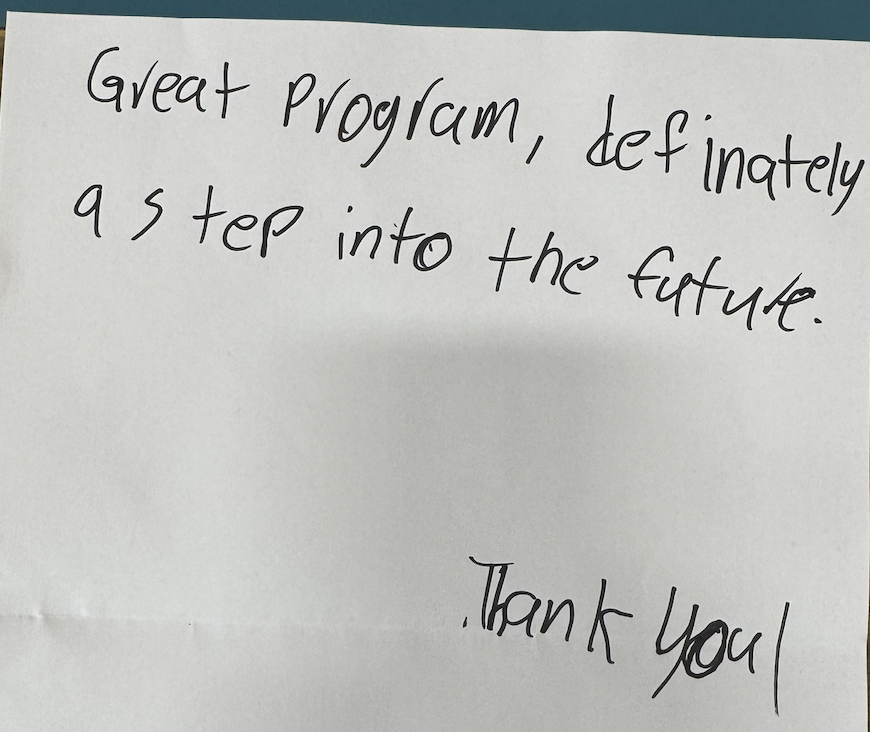 Great Program, definately
a step into the future.
Thank you!